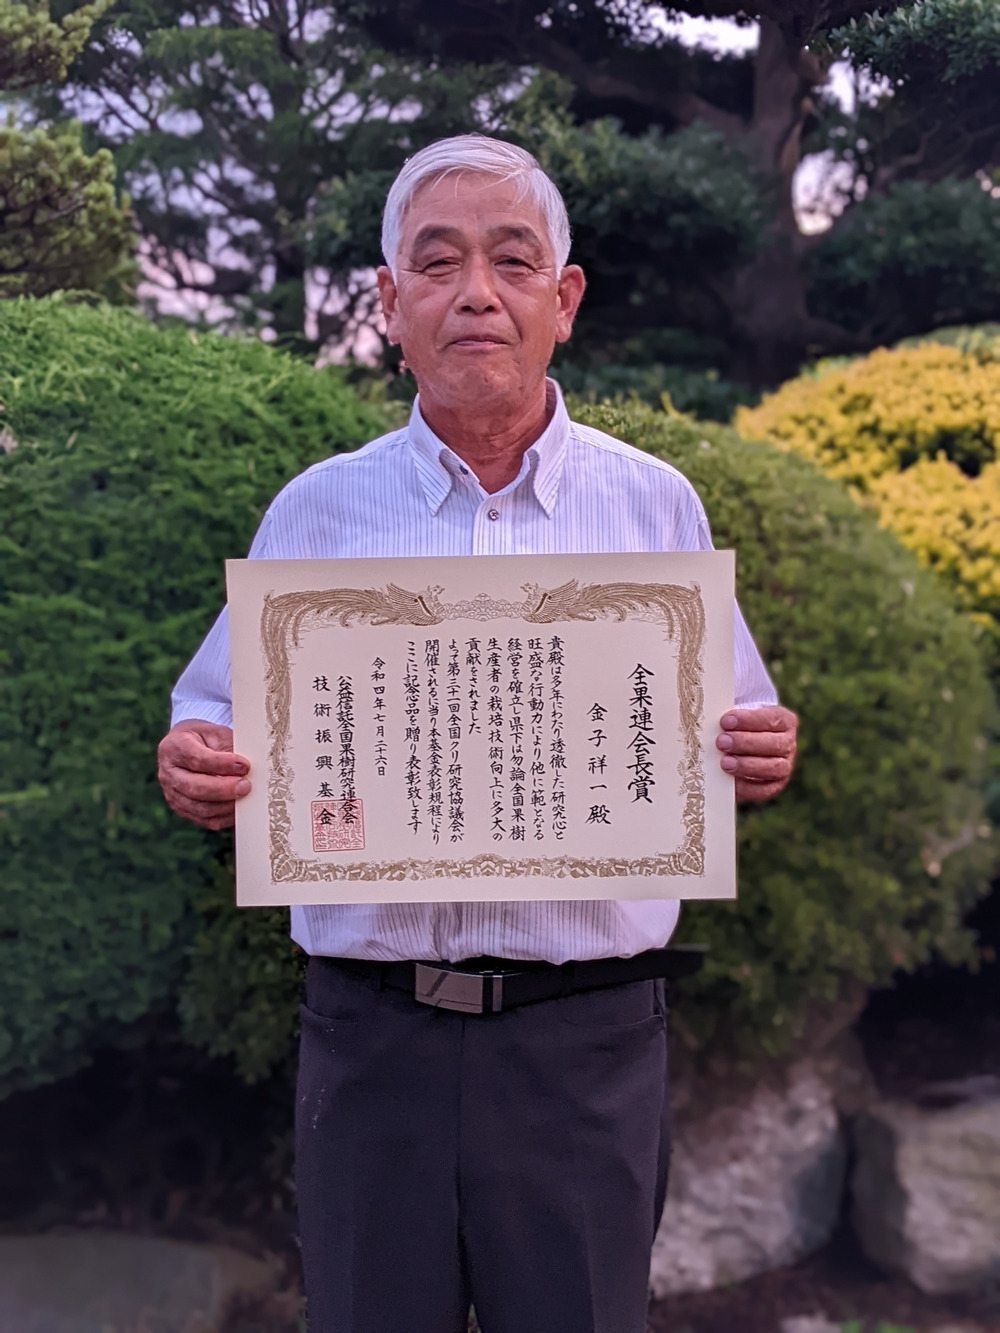 全果連会長賞
金子祥一殿
貴殿は多年にわたり透徹した研究心と
旺盛な行動力により他に範となる
経営を確立し県下は勿論全国果樹
生産者の栽培技術向上に多大の
貢献をされました
よって第三十一回全国クリ研究協議会が
開催されるに当り本基金表彰規程により
ここに記念品を贈り表彰致します
令和四年七月二十六日
公益信託全国果樹研究連合会
技術振興基金